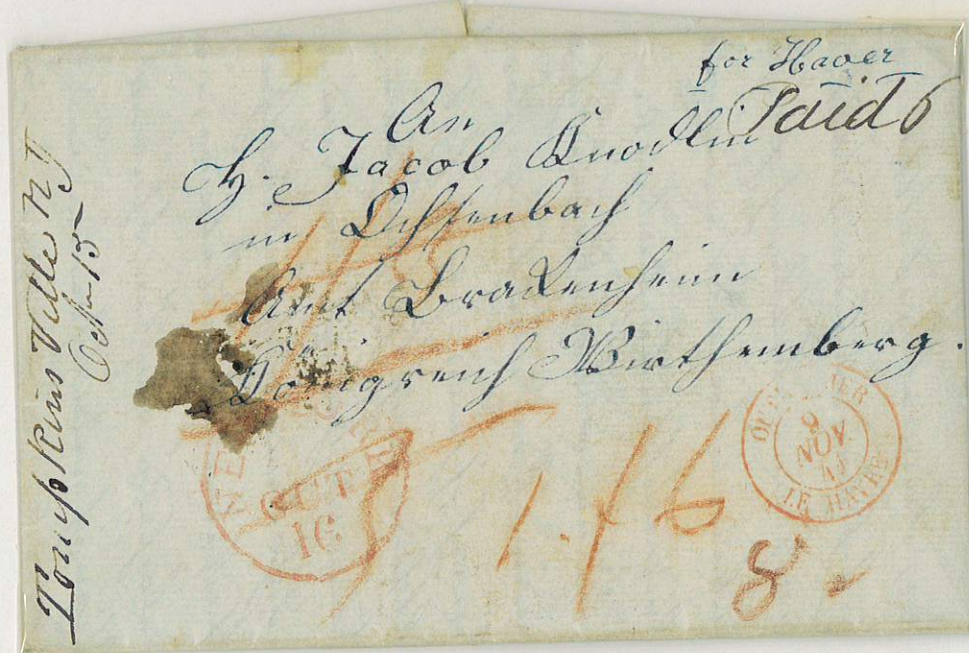 for Haver
Paid 6
An
H. Jacob Knodlin
in Ochsenbach
Amt Brackenheim
Königreich Wirthemberg.
Tompkins Ville N Y
Octr 15
NEW YORK
OCT
16
OUTRE MER
9
NOV
LE HAVRE
1/6
8